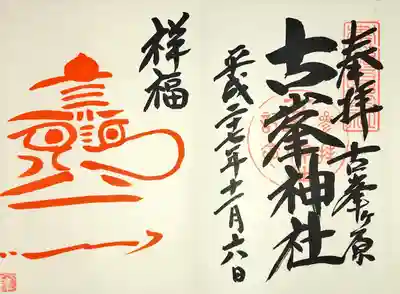 奉拝 古峯ヶ原
古峯神社
平成二十七年十一月六日
祥福